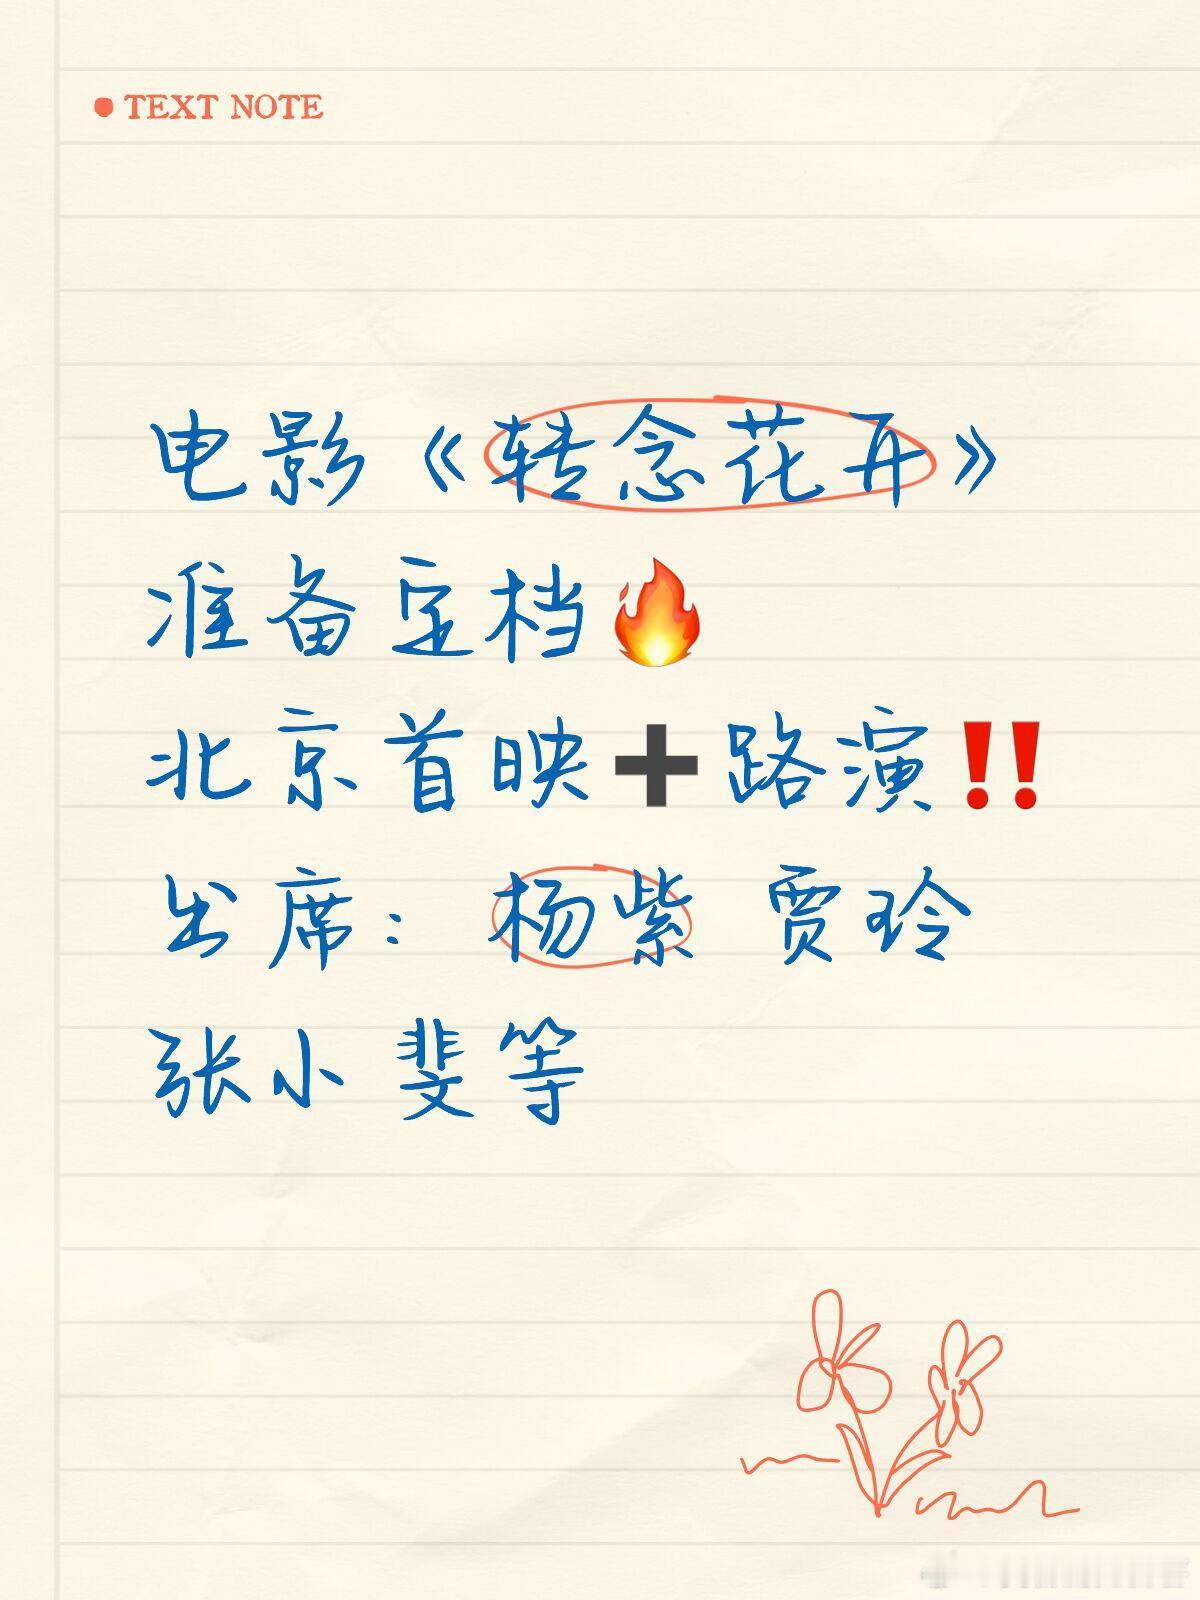 TEXT NOTE
电影《转念花开》
准备定档🔥
北京首映➕路演‼️
出席：杨紫 贾玲
张小斐等